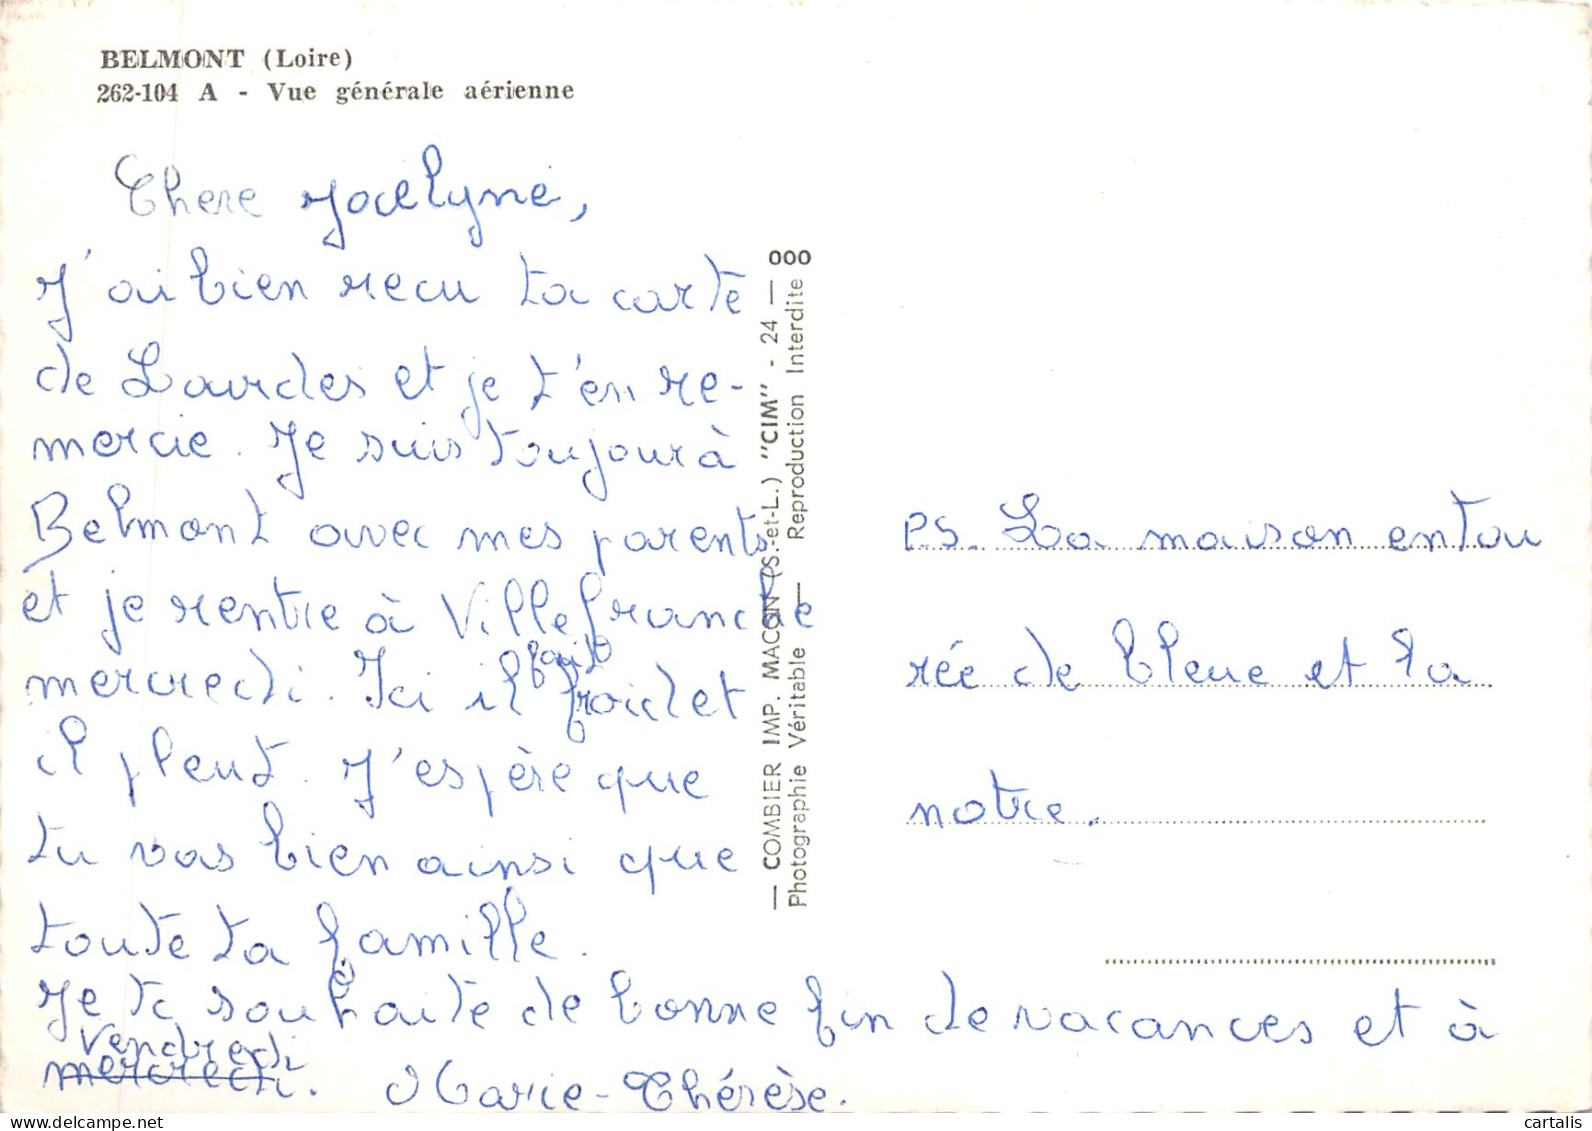 BELMONT (Loire)
262-104 A - Vue générale aérienne
Chere Jocelyne,
J'ai bien recu ta carte
de Lourdes et je t'en re-
mercie. Je suis toujour à
Belmont avec mes parents
et je rentre à Villefranche
mercredi. Ici il fait froid et
il pleut. J'espère que
tu vas bien ainsi que
toute ta famille.
Je te souhaite de bonne fin de vacances et à
mercredi. Vendredi
Marie-Thérèse.
— COMBIER IMP. MACON (S.-et-L.) "CIM" - 24 — 000
Photographie Véritable — Reproduction Interdite
PS. La maison entou
rée de bleue et la
notre.
cartalis